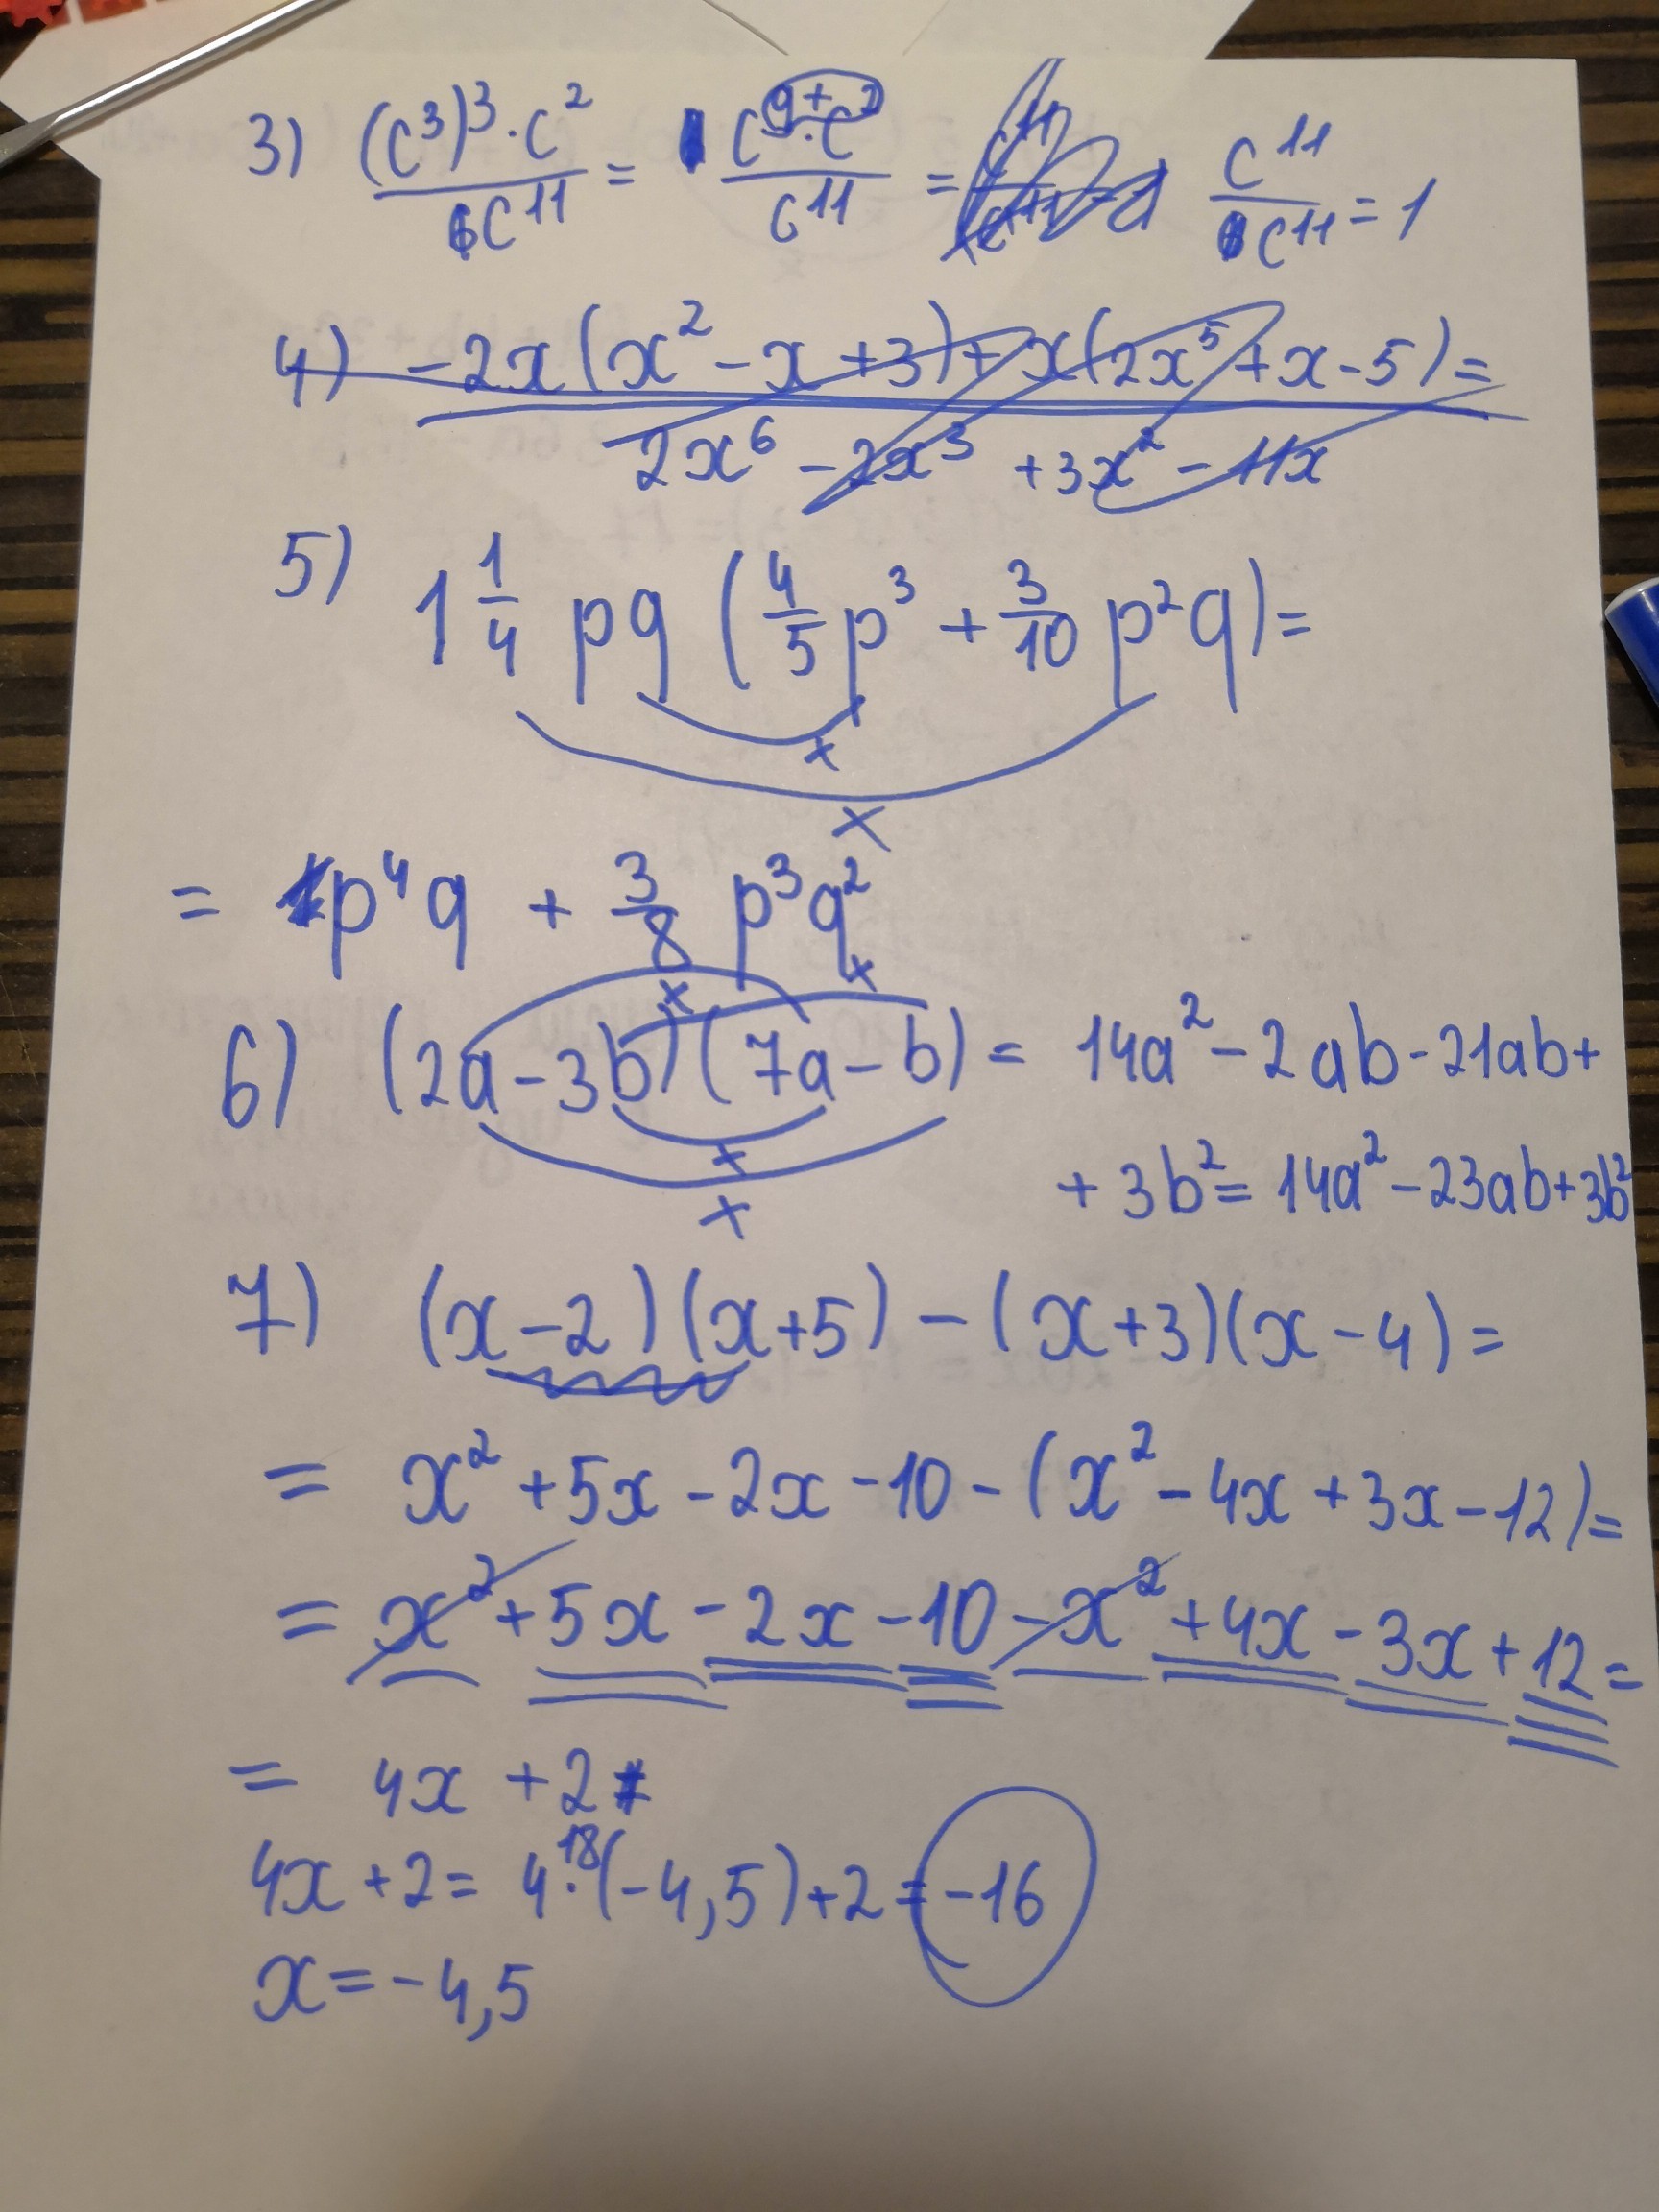 3) (c³)³·c² / c¹¹ = c⁹·c² / c¹¹ = c¹¹ / c¹¹ = 1
4) -2x(x² - x + 3) + x(2x⁵ + x - 5) =
2x⁶ - 2x³ + 3x² - 11x
5) 1 1/4 pq (4/5 p³ + 3/10 p²q) =
x
x
= p⁴q + 3/8 p³q²
x x
6) (2a - 3b)(7a - b) = 14a² - 2ab - 21ab +
+ 3b² = 14a² - 23ab + 3b²
x
x
7) (x - 2)(x + 5) - (x + 3)(x - 4) =
= x² + 5x - 2x - 10 - (x² - 4x + 3x - 12) =
= x² + 5x - 2x - 10 - x² + 4x - 3x + 12 =
= 4x + 2
18
4x + 2 = 4·(-4,5) + 2 = -16
x = -4,5